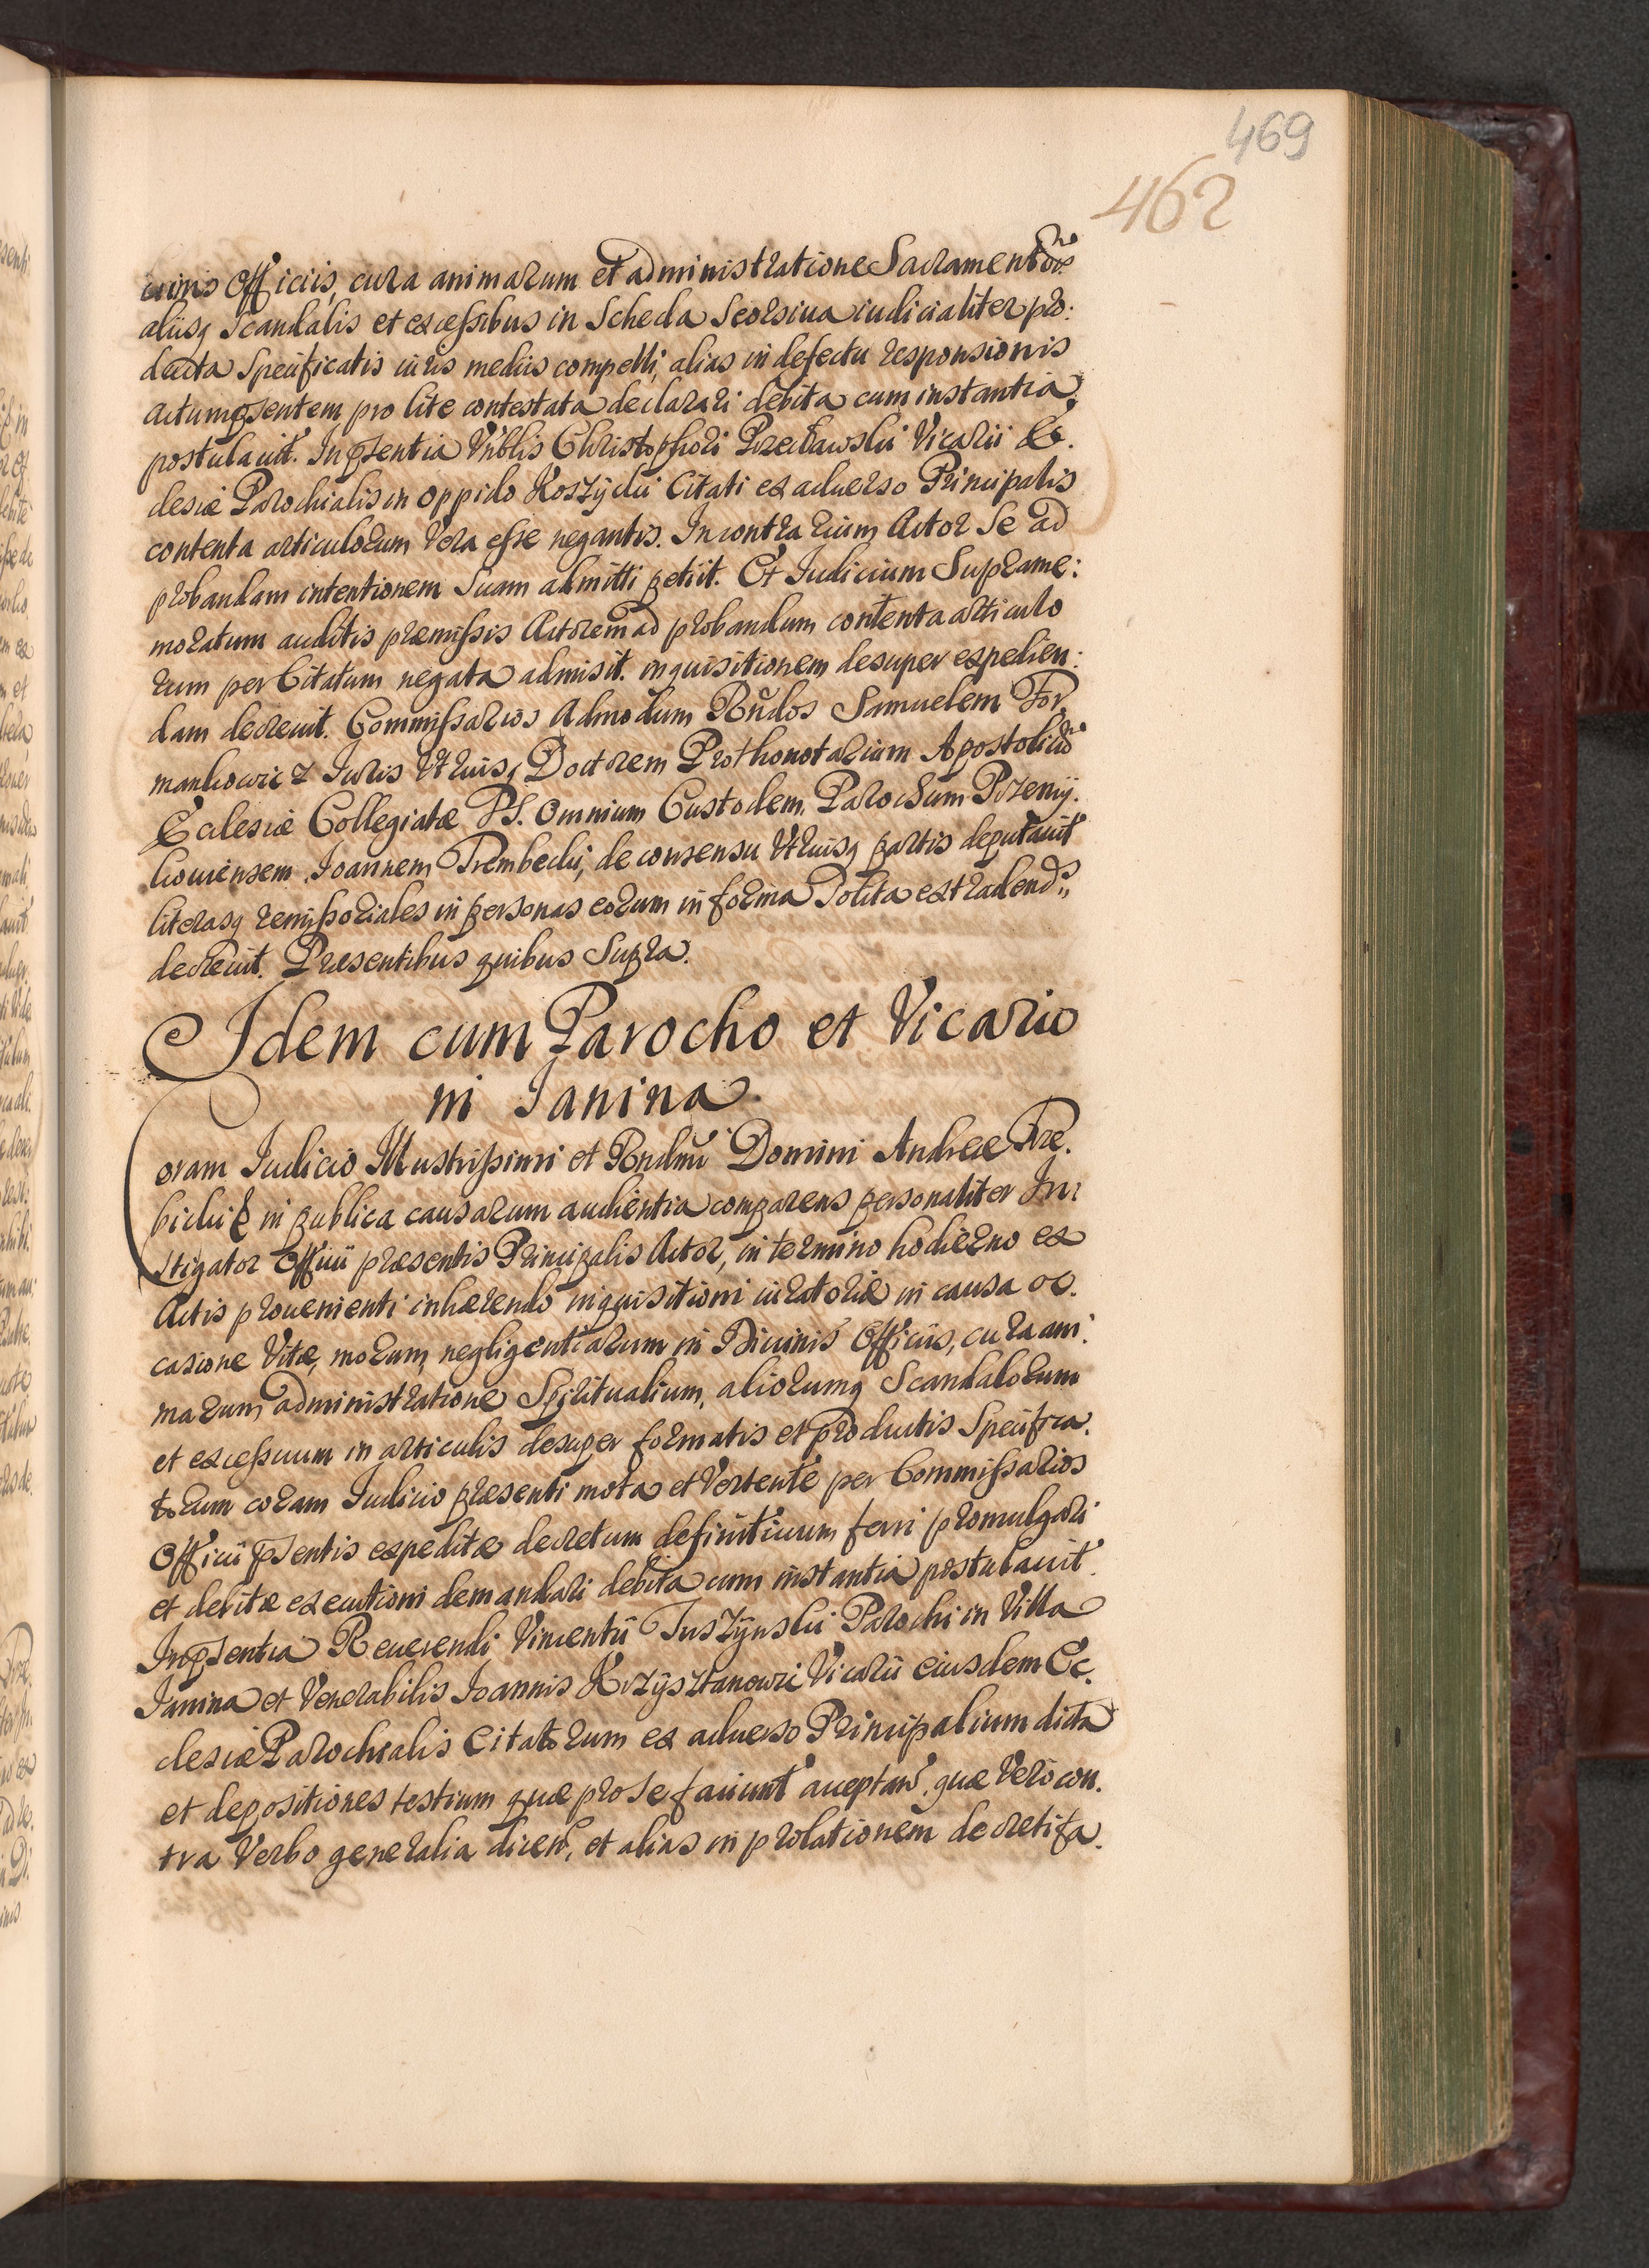 469
462
uinis Officiis, cura animarum et administratione Sacramentor̃
aliisq Scandalis et excessibus in Scheda Seorsiua iudicialiter pro:
ducta Specificatis iuris mediis compelli, alias in defectu responsionis
actum pñsentem pro lite contestata declarari debita cum instantia
postulauit. In pñsentia Vñblis Christophori Przecławski Vicarii Ec.
clesiæ Parochialis in oppido Koszycki Citati ex aduerso Principalis
contenta articulorum Vera esse negantis. In contrarium Actor Se ad
probandam intentionem Suam admitti petiit. Et Iudicium Suprame:
moratum auditis præmissis Actorem ad probandum contenta articulo
rum per Citatum negata admisit. inquisitionem desuper expedien:
dam decreuit. Commissarios Admodum Rñdos Samuelem For.
mankowicz Iuris Vtriusq Doctorem Prothonotarium Apostolicũ
Ecclesiæ Collegiatæ SS. Omnium Custodem, Parochum Przemÿ.
kouiensem, Ioannem Trembecki, de consensu Vtriusq partis deputauit
literasq remissoriales in personas eorum in forma Solita extradend.
decreuit. Præsentibus quibus Supra.
Idem cum Parocho et Vicario
in Ianina.
Coram Iudicio Illustrissimi et Rndmi Domini Andreæ Tre.
bicki E in publica causarum audientia comparens personaliter In:
stigator Officii præsentis Principalis Actor, in termino hodierno ex
Actis prouenienti inhærendo inquisitioni iuratoriæ in causa oc.
casione Vitæ, morum, negligentiarum in Diuinis Officiis, cura ani:
marum administratione Spiritualium, aliorumq Scandalorum
et excessuum in articulis desuper formatis et productis Specifica.
torum coram Iudicio præsenti mota et Vertente per Commissarios
Officii pñsentis expeditæ decretum definitiuum ferri promulgari
et debitæ executioni demandari debita cum instantia postulauit.
In pñsentia Reuerendi Vincentii Tuszÿnski Parochi in Villa
Ianina et Venerabilis Ioannis Krzÿsztanowic Vicarii eiusdem Ec.
clesiæ Parochialis Citatorum ex aduerso Principalium dicta
et depositiones testium quæ pro se faciunt acceptan̄. quæ Vero con.
tra Verbo generalia dicen̄, et alias in prolationem decreti fa.